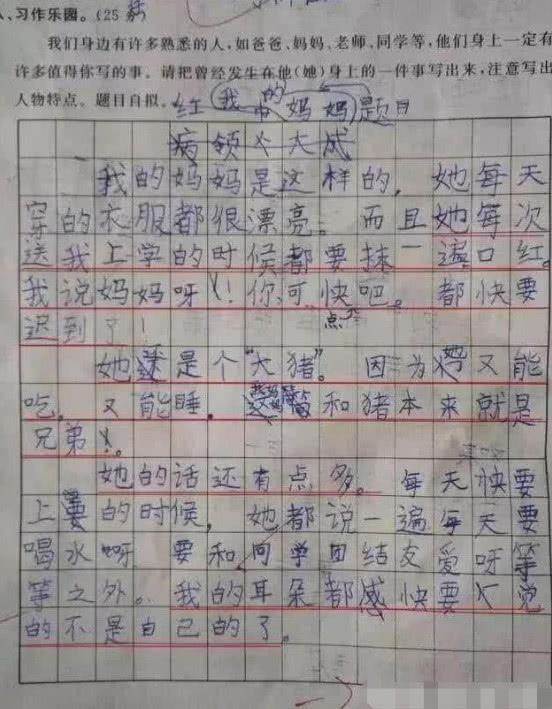 、习作乐园。(25
我们身边有许多熟悉的人,如爸爸、妈妈、老师、同学等,他们身上一定有
许多值得你写的事。请把曾经发生在他(她)身上的一件事写出来,注意写出
人物特点。题目自拟。
红 我的妈妈 题目
我的妈妈是这样的,她每天
穿的衣服都很漂亮。而且她每次
送我上学的时候都要抹一遍口红。
我说妈妈呀!你可快点吧。都快要
迟到了!
她还是个“大猪”。因为她又能
吃。又能睡。和猪本来就是
兄弟。
她的话还有点多。每天快要
上的时候,她都说一遍每天要
喝水呀 要和同学团结友爱呀等
等之外。我的耳朵都感快要觉
的不是自己的了。